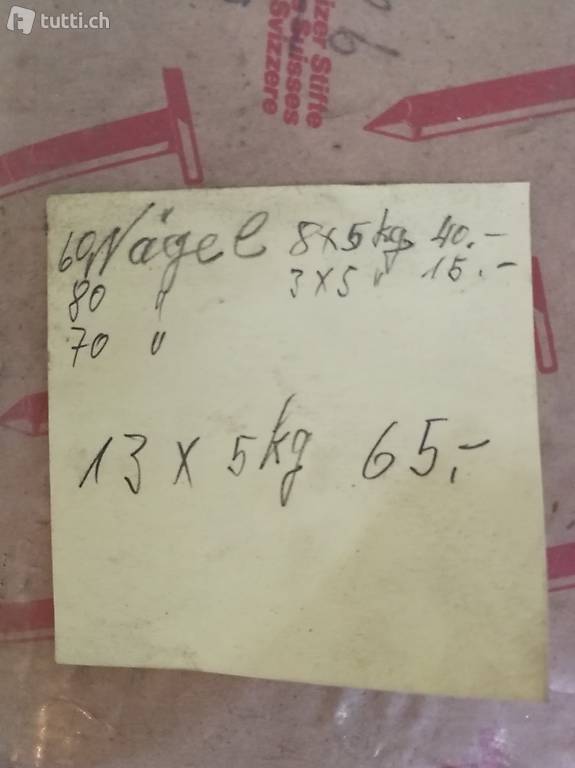 tutti.ch
izer Stifte
Suisses
Svizzere
60 Nägel 8x5 kg 40.-
80 " 3x5 " 15.-
70 "
13 x 5 kg 65.-